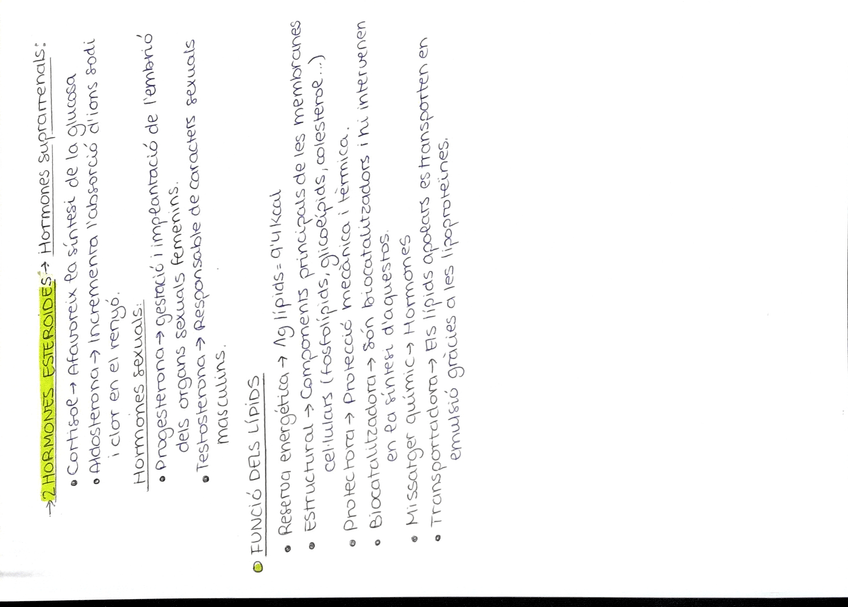 → 2 HORMONES ESTEROIDES → Hormones suprarrenals:
• Cortisol → Afavoreix la síntesi de la glucosa
• Aldosterona → Incrementa l'absorció d'ions sodi
i clor en el renyó.
Hormones sexuals:
• Progesterona → gestació i implantació de l'embrió
dels organs sexuals femenins.
• Testosterona → Responsable de caracters sexuals
masculins.
• FUNCIÓ DELS LÍPIDS
• Reserva energética → 1g lípids = 9'4 Kcal
• Estructural → Components principals de les membranes
cel·lulars (fosfolípids, glicolípids, colesterol...)
• Protectora → Protecció mecànica i tèrmica.
• Biocatalitzadora → Són biocatalitzadors i hi intervenen
en la síntesi d'aquestos.
• Missatger químic → Hormones
• Transportadora → Els lípids apolars es transporten en
emulsió gràcies a les lipoproteïnes.